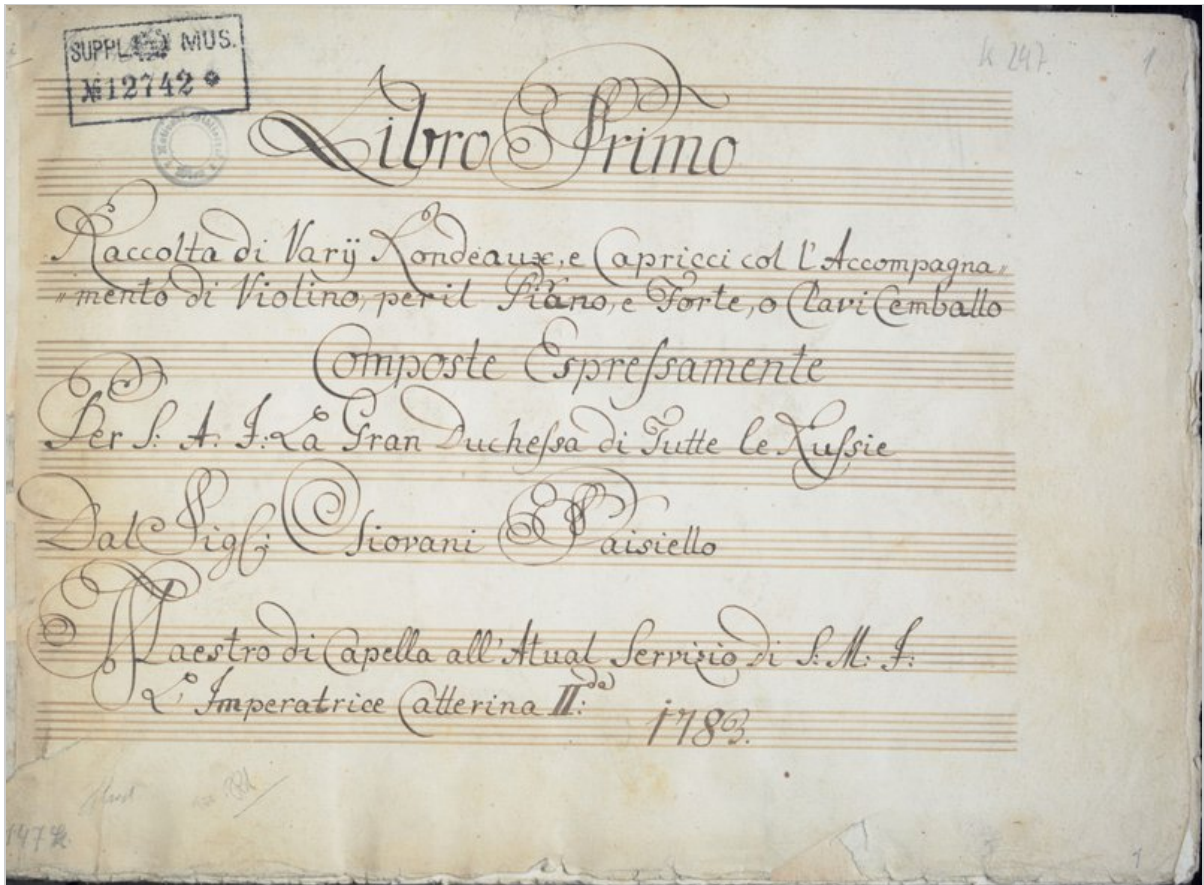 SUPPL. MUS.
№12742 *
k 247.
1
Libro Primo
Raccolta di Varÿ Rondeaux, e Capricci col l'Accompagna„
„mento di Violino, per il Piano, e Forte, o Clavi Cemballo
Composte Espreſsamente
Per S: A: I: La Gran Ducheſsa di Tutte le Ruſsie
Dal Sig: Giovani Paisiello
Maestro di Capella all'Atual Servizio di S: M: I:
L'Imperatrice Catterina II:da
1783.
1